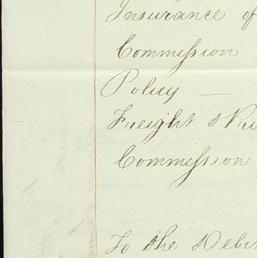 Insurance of
Commission
Policy —
Freight &
Commission
To the Debit